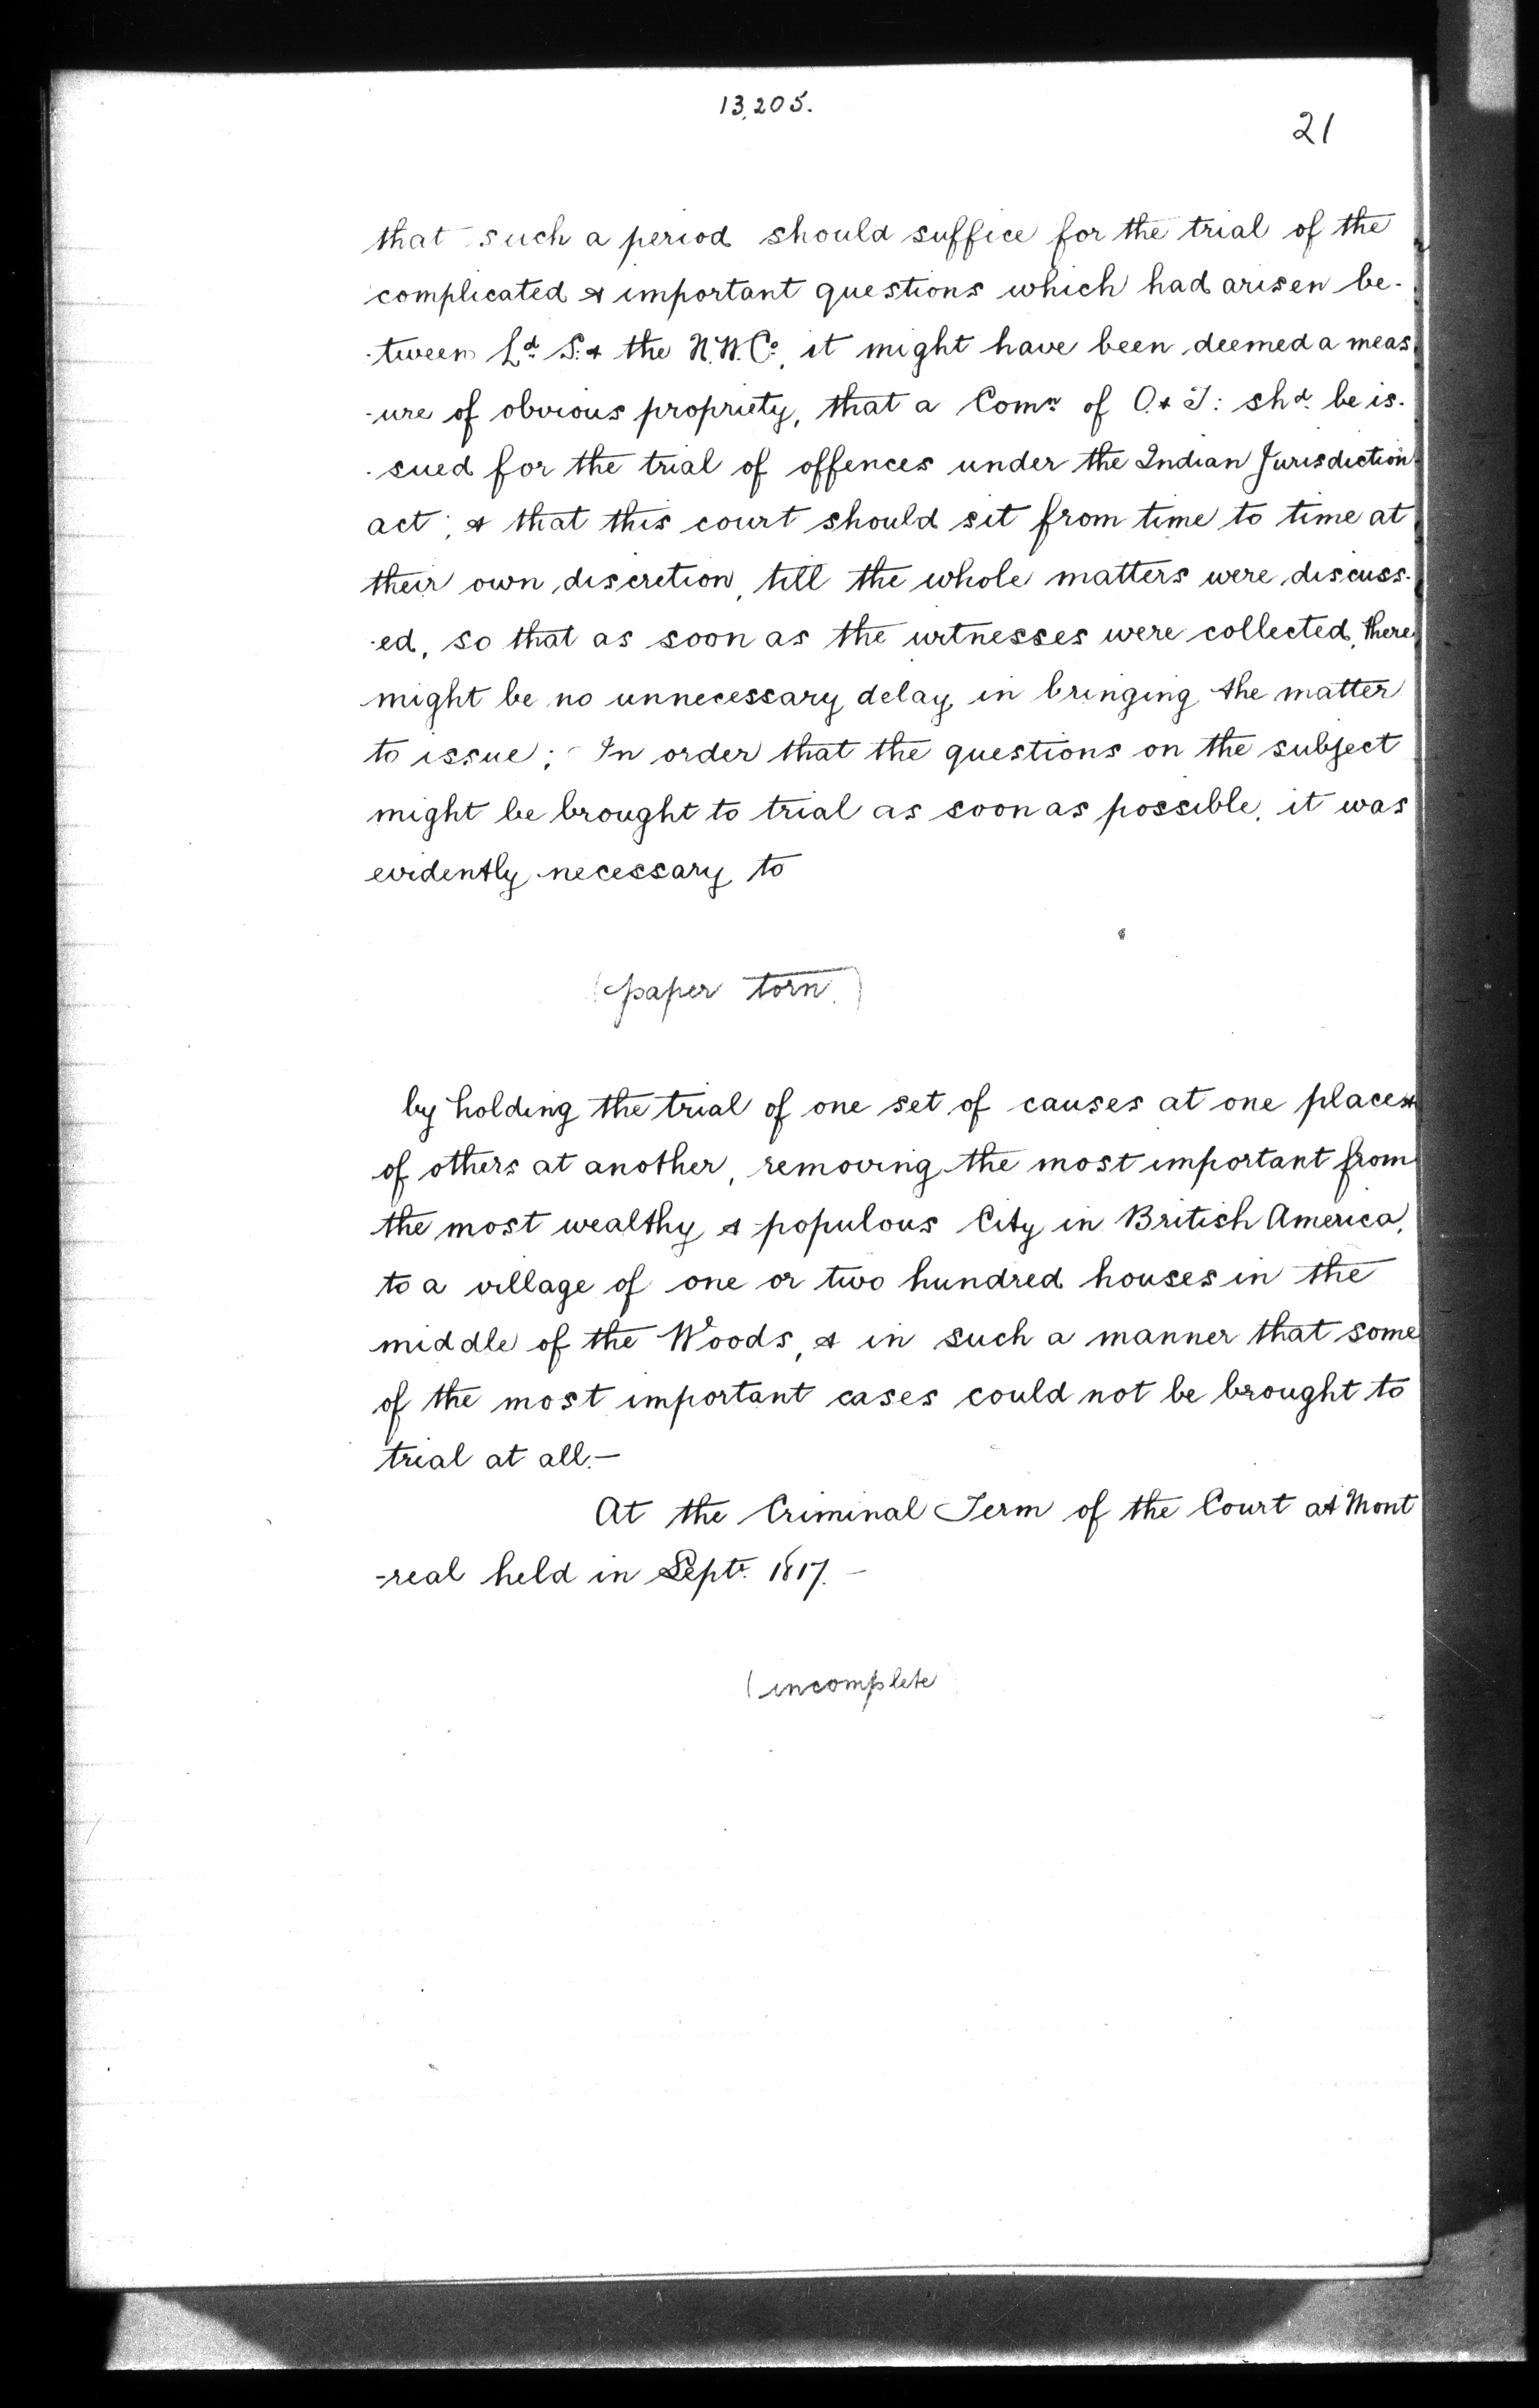 13,205.
21
that such a period should suffice for the trial of the
complicated & important questions which had arisen be-
-tween Ld. S. & the N.W. Co., it might have been deemed a meas
-ure of obvious propriety, that a Comn. of O. & T: shd. be is-
-sued for the trial of offences under the Indian Jurisdiction
act; & that this court should sit from time to time at
their own discretion, till the whole matters were discuss-
-ed, so that as soon as the witnesses were collected, there
might be no unnecessary delay in bringing the matter
to issue; In order that the questions on the subject
might be brought to trial as soon as possible, it was
evidently necessary to
(paper torn.)
by holding the trial of one set of causes at one place &
of others at another, removing the most important from
the most wealthy & populous City in British America,
to a village of one or two hundred houses in the
middle of the Woods, & in such a manner that some
of the most important cases could not be brought to
trial at all.—
At the Criminal Term of the Court at Mont
-real held in Septr. 1817. —
(incomplete